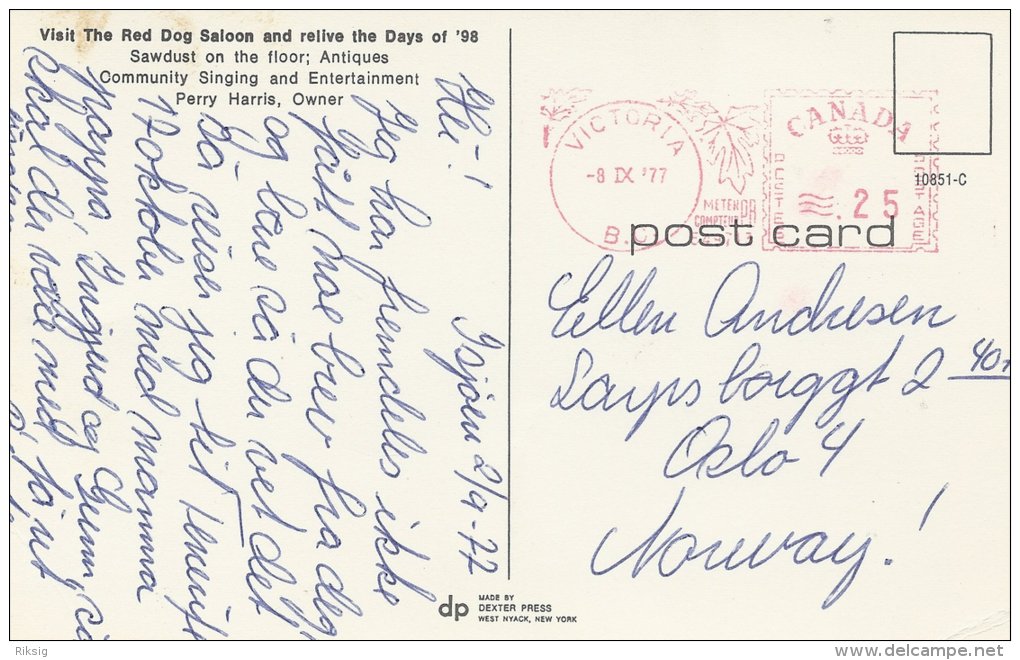 Visit The Red Dog Saloon and relive the Days of '98
Sawdust on the floor; Antiques
Community Singing and Entertainment
Perry Harris, Owner
2/9-77
Hei!
Jeg har fremdeles ikke
fått noe brev fra deg
og bare så du vet det
så reiser jeg til
17 oktober med mamma
pappa, Ingjerd og Gunn, så
skal du være med
VICTORIA
-8 IX '77
B.C.
CANADA
POSTES
POSTAGE
.25
METER
10851-C
post card
Ellen Andresen
2 40
Oslo 4
Norway!
dp
MADE BY
DEXTER PRESS
WEST NYACK, NEW YORK
Riksig
delcampe.net